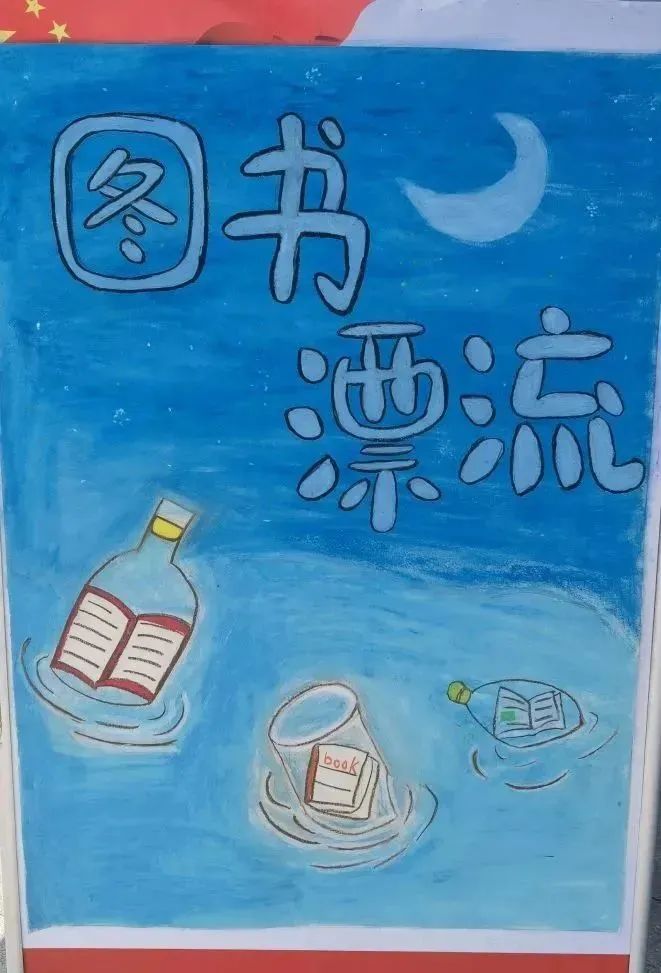 图书
漂流
book